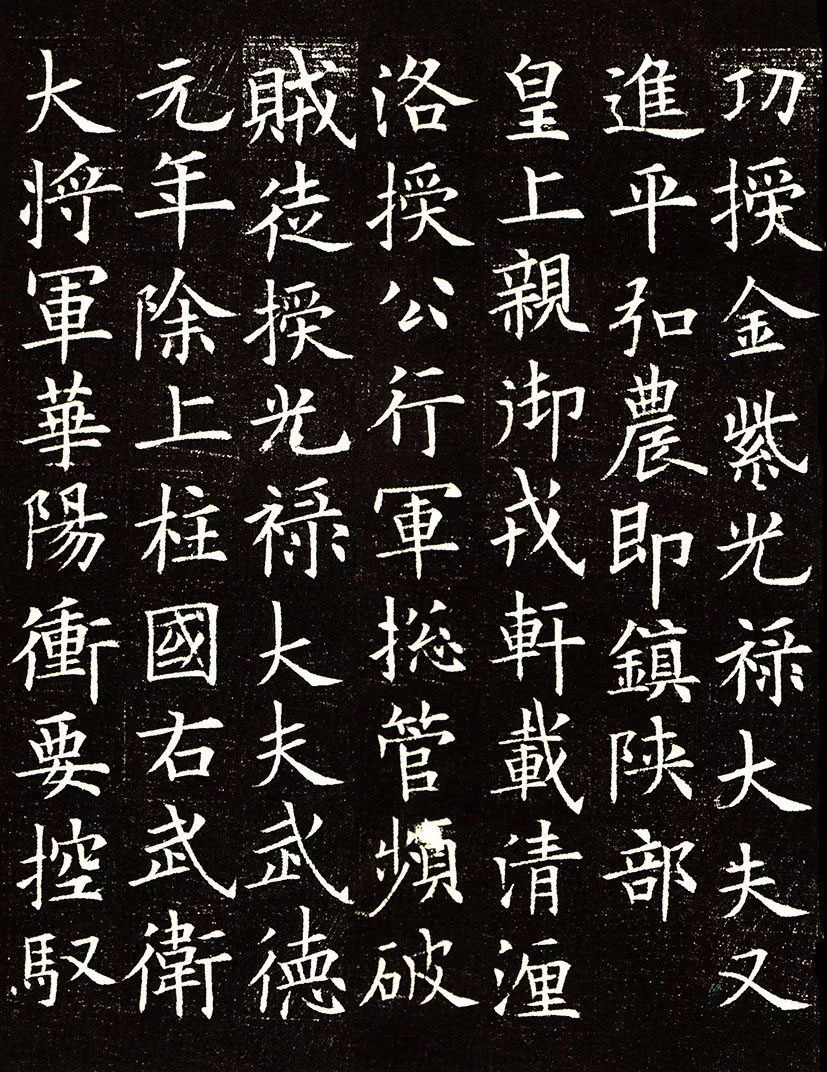 功授金紫光禄大夫又
進平弘農即鎮陝部
皇上親御戎軒載清湹
洛授公行軍揔管頻破
賊徒授光禄大夫武德
元年除上柱國右武衛
大將軍華陽衝要控馭